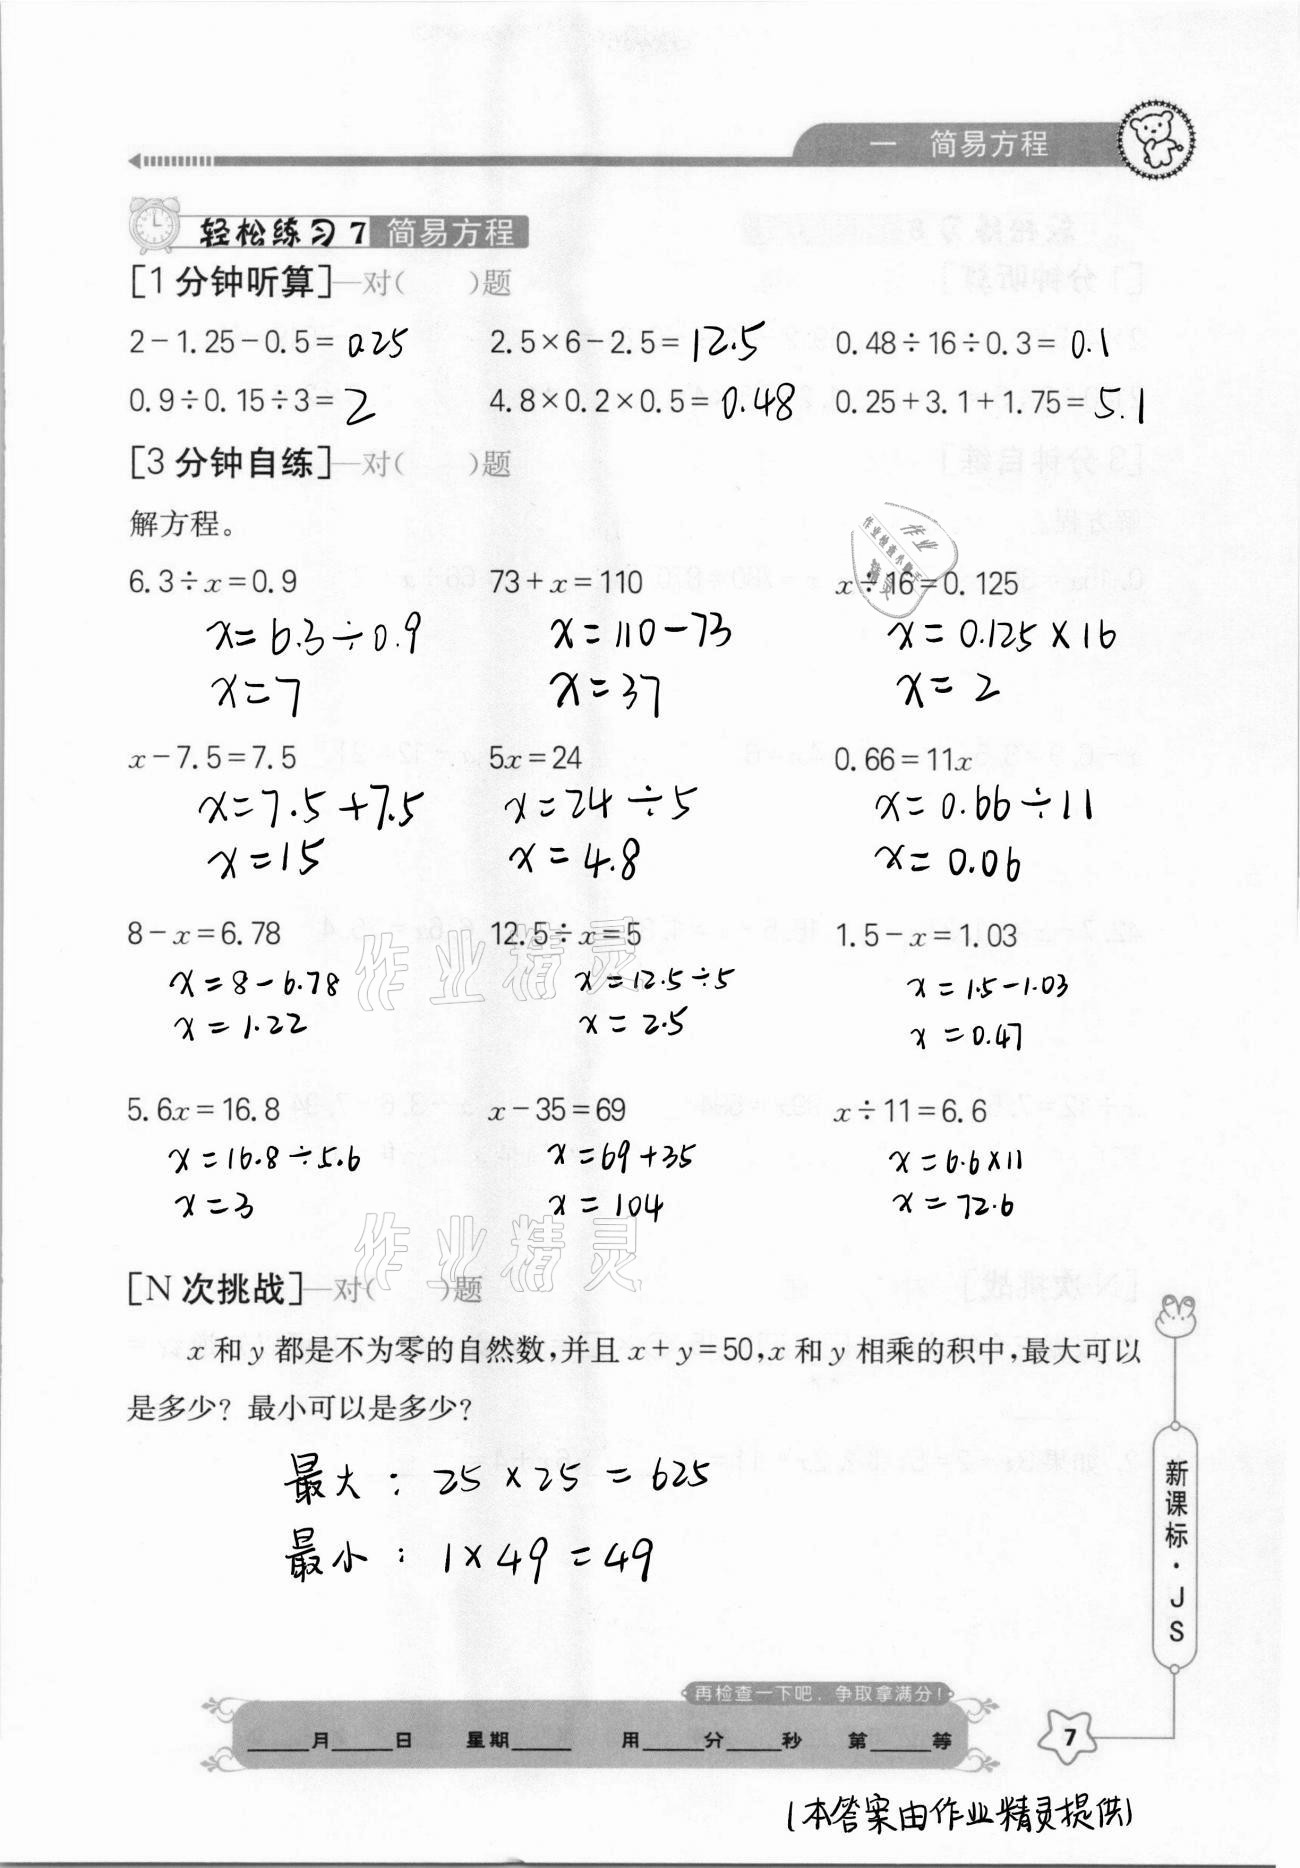 一 简易方程
轻松练习7 简易方程
[1分钟听算]—对( )题
2-1.25-0.5= 0.25 2.5×6-2.5= 12.5 0.48÷16÷0.3= 0.1
0.9÷0.15÷3= 2 4.8×0.2×0.5= 0.48 0.25+3.1+1.75= 5.1
[3分钟自练]—对( )题
解方程。
6.3÷x=0.9 73+x=110 x÷16=0.125
x=6.3÷0.9 x=110-73 x=0.125×16
x=7 x=37 x=2
x-7.5=7.5 5x=24 0.66=11x
x=7.5+7.5 x=24÷5 x=0.66÷11
x=15 x=4.8 x=0.06
8-x=6.78 12.5÷x=5 1.5-x=1.03
x=8-6.78 x=12.5÷5 x=1.5-1.03
x=1.22 x=2.5 x=0.47
5.6x=16.8 x-35=69 x÷11=6.6
x=16.8÷5.6 x=69+35 x=6.6×11
x=3 x=104 x=72.6
[N次挑战]—对( )题
x和y都是不为零的自然数,并且x+y=50,x和y相乘的积中,最大可以
是多少? 最小可以是多少?
最大: 25×25=625
最小: 1×49=49
新课标·JS
再检查一下吧,争取拿满分!
____月____日 星期____ 用____分____秒 第____等
7
(本答案由作业精灵提供)
作业精灵
作业精灵
作业
作业检查小助手
精灵